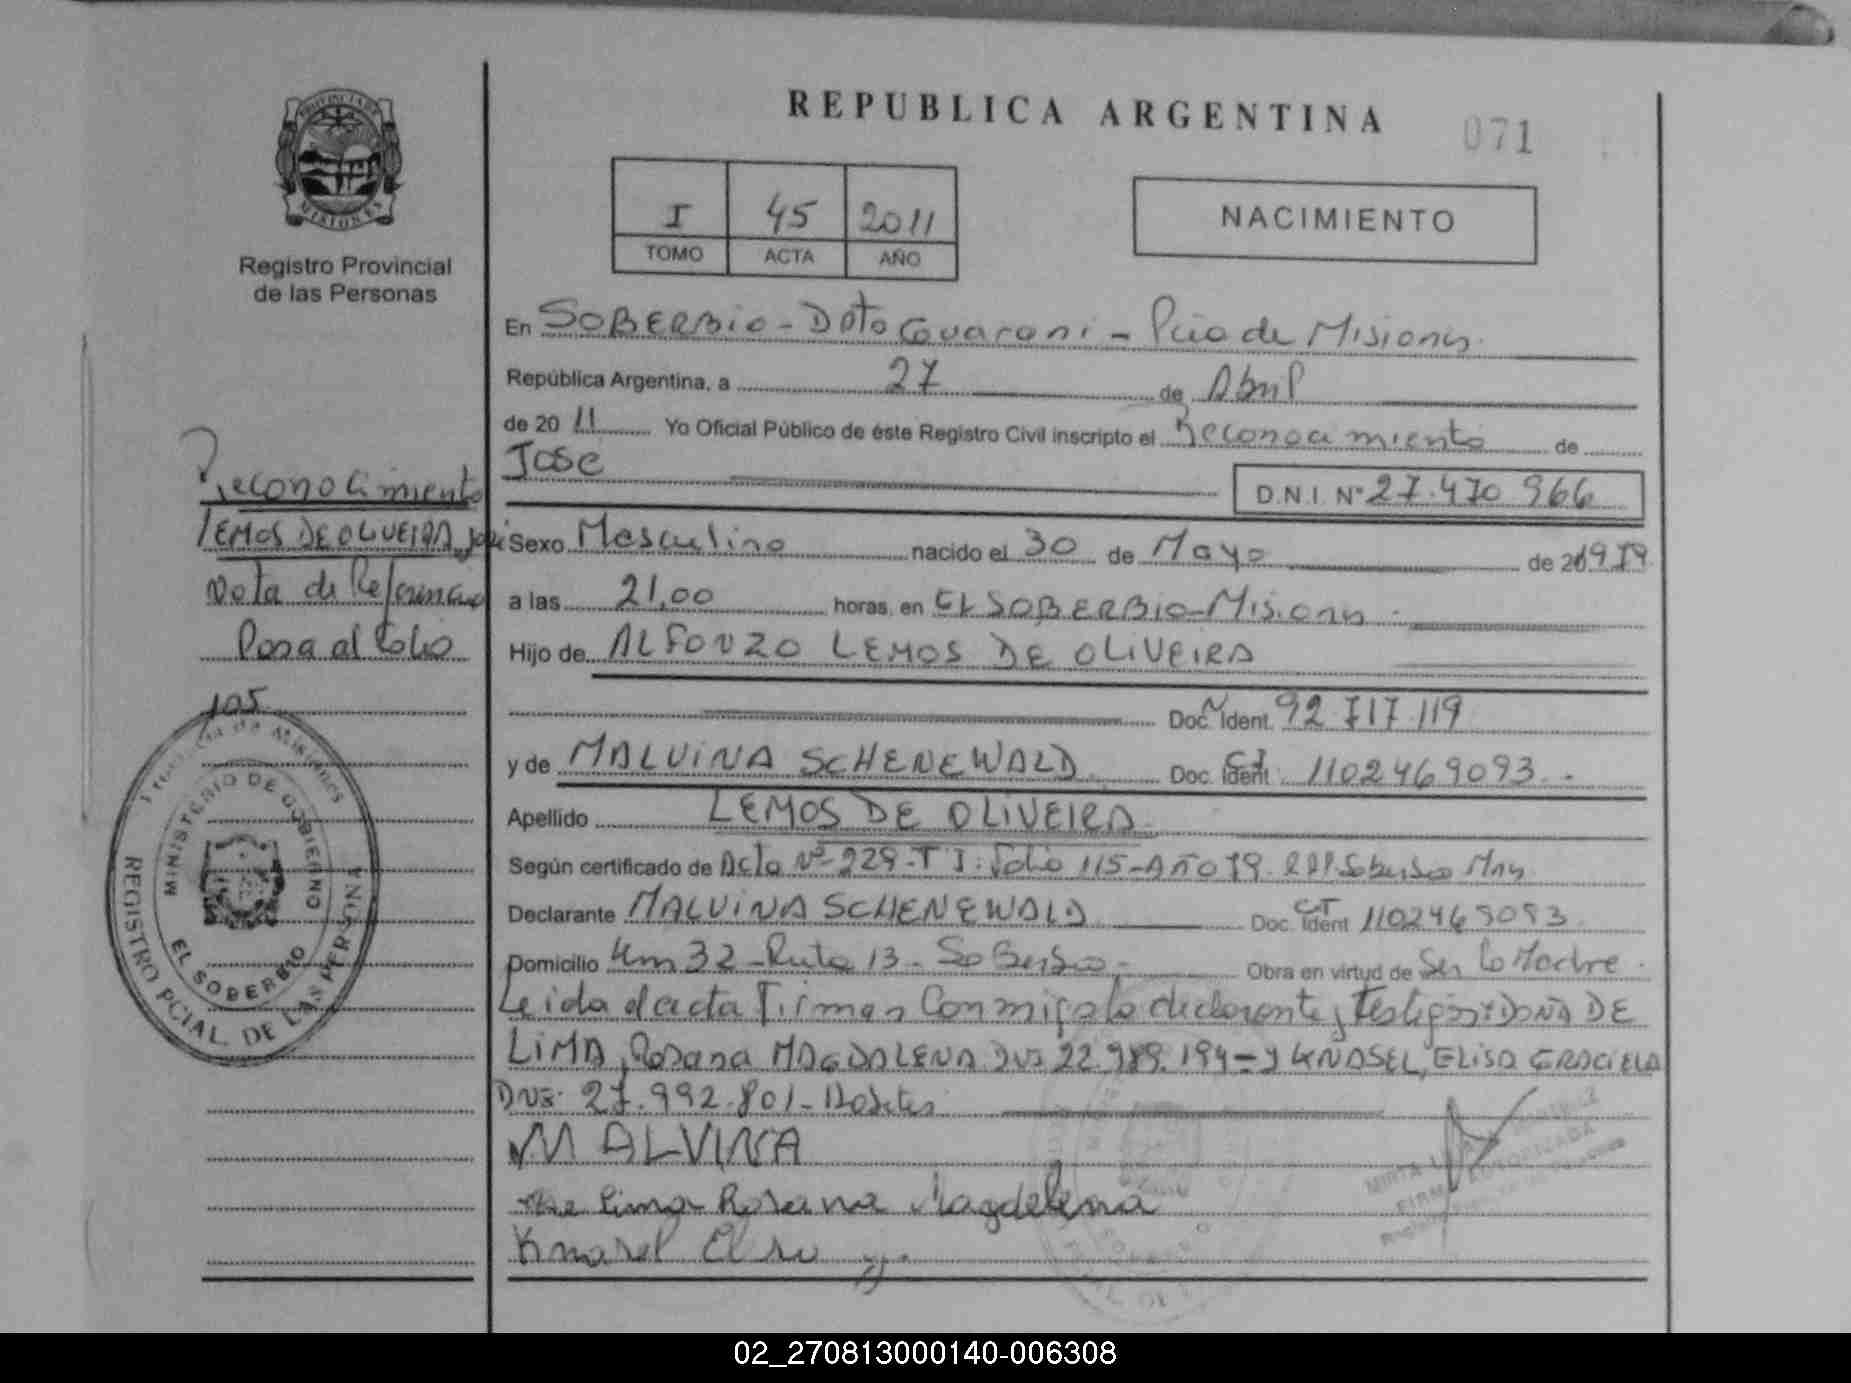 REPUBLICA ARGENTINA
071
PROVINCIA DE
MISIONES
Registro Provincial
de las Personas
I 45 2011
TOMO ACTA AÑO
NACIMIENTO
En SOBERBIO - Dpto Guarani - Pcia de Misiones.
República Argentina, a 27 de Abril
de 20 11 Yo Oficial Público de éste Registro Civil inscripto el Reconocimiento de
Jose
D.N.I. Nº 27.470 966
Sexo Masculino nacido el 30 de Mayo de 1979
a las 21,00 horas, en EL SOBERBIO - Misiones
Hijo de ALFONZO LEMOS DE OLIVEIRA
Doc. Ident. 92 717 119
y de MALVINA SCHENEWALD Doc. Ident. CI 1102469093.
Apellido LEMOS DE OLIVEIRA
Según certificado de Acta Nº 229 - T I: Folio 115 - AÑO 79. Soberbio Mnes
Declarante MALVINA SCHENEWALD Doc. Ident CI 1102469093
Domicilio Km 32 - Ruta 13 - Soberbio - Obra en virtud de Ser la Madre.
Leida el acta Firman Conmigo la declarante y Testigos: DE
LIMA, Rosana MAGDALENA DNI 22.989.194 - y KNASEL, ELISA GRACIELA
DNI: 27.992.801 -
MALVINA
de Lima Rosana Magdalena
Knasel
Reconocimiento
LEMOS DE OLIVEIRA, José
Nota de Referencia
Pasa al Folio
105
Provincia de Misiones
MINISTERIO DE GOBIERNO
EL SOBERBIO
REGISTRO PCIAL. DE LAS PERSONAS
MIRTA
FIRMA AUTORIZADA
02_270813000140-006308